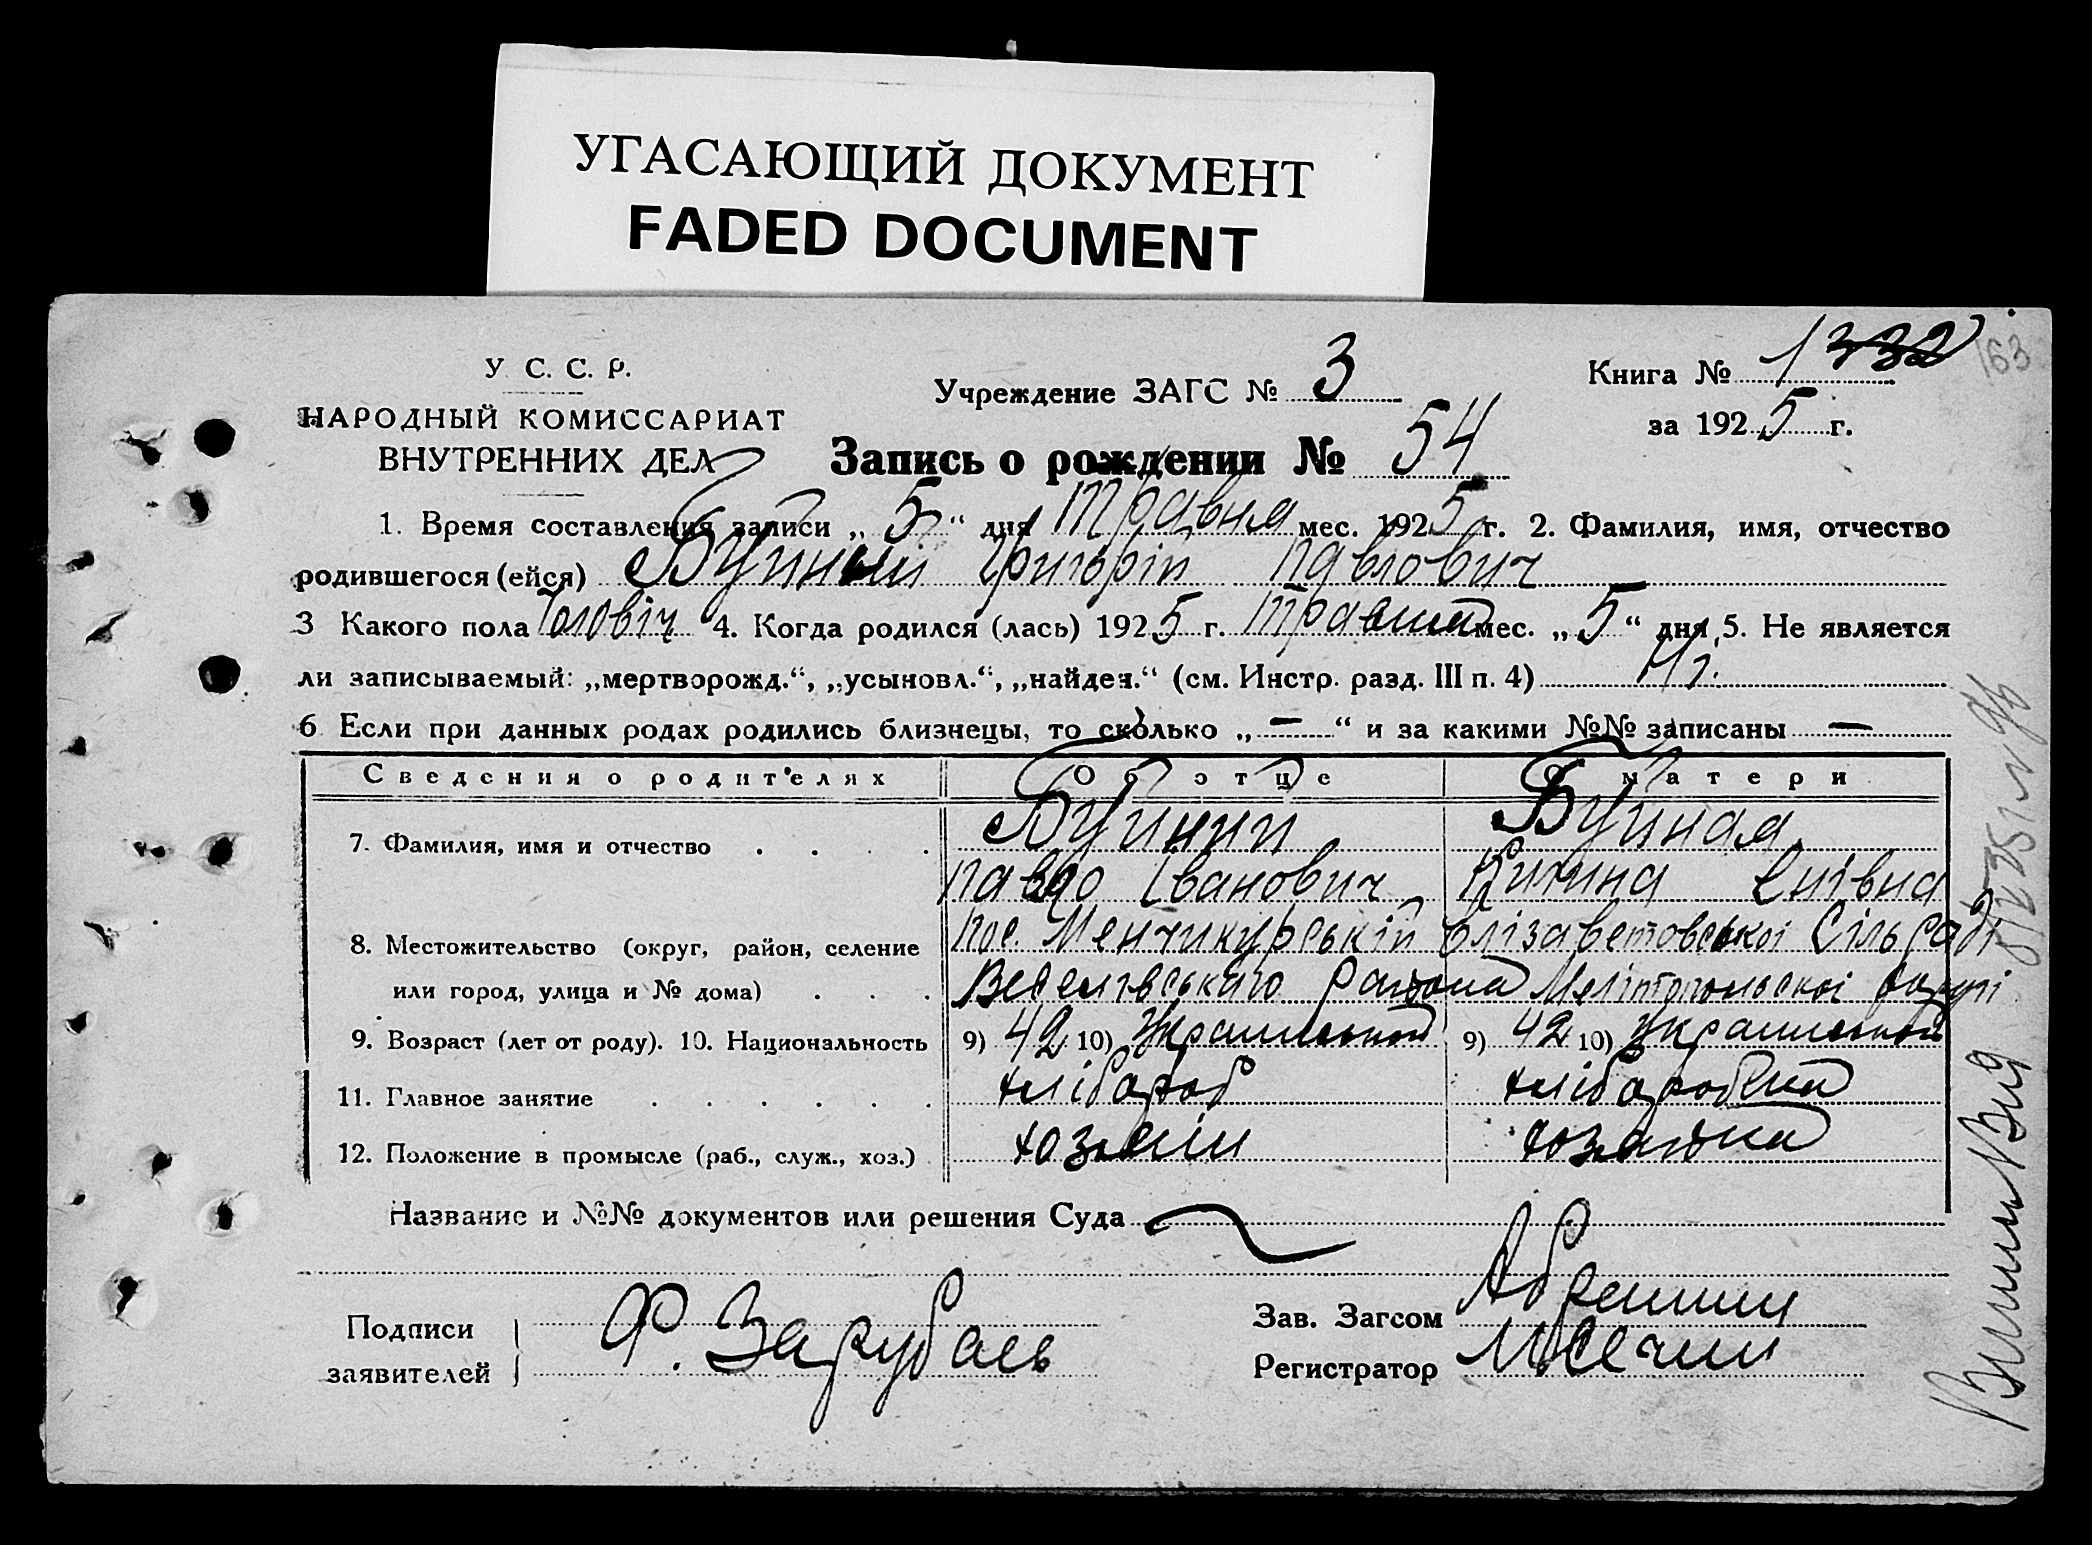 УГАСАЮЩИЙ ДОКУМЕНТ
FADED DOCUMENT
У. С. С. Р.
НАРОДНЫЙ КОМИССАРИАТ
ВНУТРЕННИХ ДЕЛ
Учреждение ЗАГС № 3
Книга № 1 332
163
за 1925 г.
Запись о рождении № 54
1. Время составления записи „ 5 “ дня Травня мес. 1925 г. 2. Фамилия, имя, отчество
родившегося (ейся) Григорій Павлович
3 Какого пола Чоловіч 4. Когда родился (лась) 1925 г. Травня мес. „ 5 “ дня 5. Не является
ли записываемый: „мертворожд.“, „усыновл.“, „найден.“ (см. Инстр. разд. III п. 4) Ні.
6 Если при данных родах родились близнецы, то сколько „ — “ и за какими №№ записаны —
Сведения о родителях Об отце О матери
7. Фамилия, имя и отчество Буйний Буйная
Павло Іванович
8. Местожительство (округ, район, селение Пос. Менчикурський Єлізаветовської Сільради
или город, улица и № дома) района Мелітопольскоі округі
9. Возраст (лет от роду). 10. Национальность 9) 42 10) 9) 42 10)
11. Главное занятие хлібороб хліборобка
12. Положение в промысле (раб., служ., хоз.) хозяін хозяйка
Название и №№ документов или решения Суда
Подписи
заявителей
Зав. Загсом
Регистратор